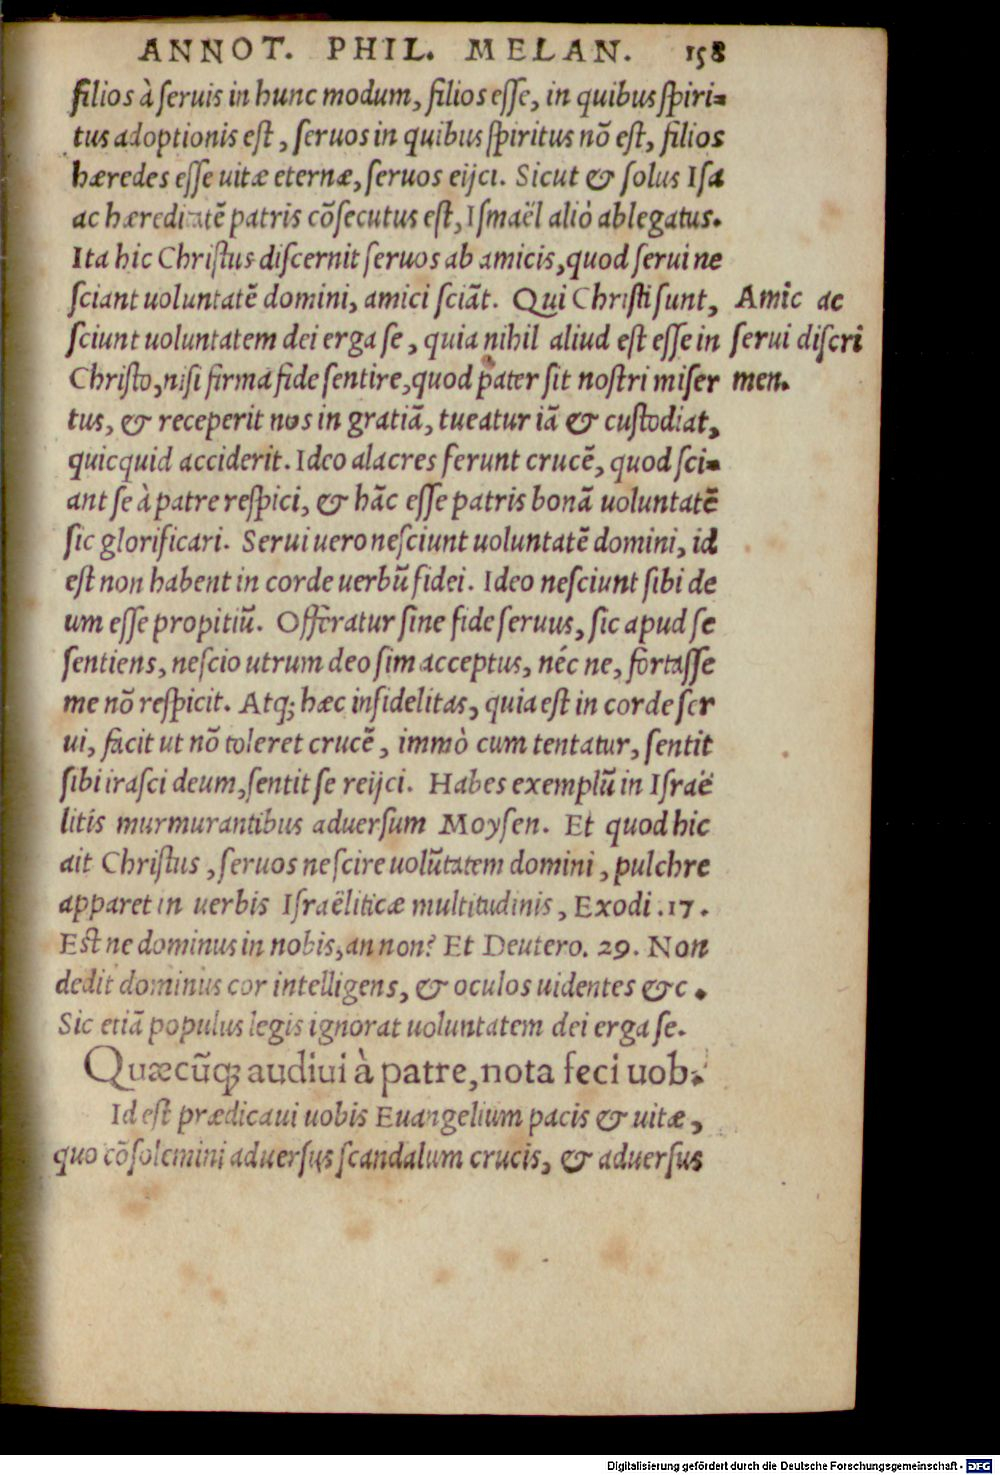 ANNOT. PHIL. MELAN. 158
filios à ſeruis in hunc modum, filios eſſe, in quibus ſpiri-
tus adoptionis eſt, ſeruos in quibus ſpiritus nõ eſt, filios
hæredes eſſe uitæ eternæ, ſeruos eijci. Sicut & ſolus Iſa
ac hæreditatẽ patris cõſecutus eſt, Iſmaël aliò ablegatus.
Ita hic Chriſtus diſcernit ſeruos ab amicis, quod ſerui ne
ſciant uoluntatẽ domini, amici ſciãt. Qui Chriſti ſunt,
ſciunt uoluntatem dei erga ſe, quia nihil aliud eſt eſſe in
Chriſto, niſi firma fide ſentire, quod pater ſit noſtri miſer
tus, & receperit nos in gratiã, tueatur iã & cuſtodiat,
quicquid acciderit. Ideo alacres ferunt crucẽ, quod ſci-
ant ſe à patre reſpici, & hãc eſſe patris bonã uoluntatẽ
ſic glorificari. Serui uero neſciunt uoluntatẽ domini, id
eſt non habent in corde uerbũ fidei. Ideo neſciunt ſibi de
um eſſe propitiũ. Offeratur ſine fide ſeruus, ſic apud ſe
ſentiens, neſcio utrum deo ſim acceptus, néc ne, fortaſſe
me nõ reſpicit. Atq; hæc infidelitas, quia eſt in corde ſer
ui, facit ut nõ toleret crucẽ, immò cum tentatur, ſentit
ſibi iraſci deum, ſentit ſe reijci. Habes exemplũ in Iſraë
litis murmurantibus aduerſum Moyſen. Et quod hic
ait Chriſtus, ſeruos neſcire uolũtatem domini, pulchre
apparet in uerbis Iſraëliticæ multitudinis, Exodi .17.
Eſt ne dominus in nobis, an non? Et Deutero. 29. Non
dedit dominus cor intelligens, & oculos uidentes &c.
Sic etiã populus legis ignorat uoluntatem dei erga ſe.
Quæcũq; audiui à patre, nota feci uob.
Id eſt prædicaui uobis Euangelium pacis & uitæ,
quo cõſolemini aduerſus ſcandalum crucis, & aduerſus
Amic ac
ſerui diſcri
men.
Digitalisierung gefördert durch die Deutsche Forschungsgemeinschaft - DFG